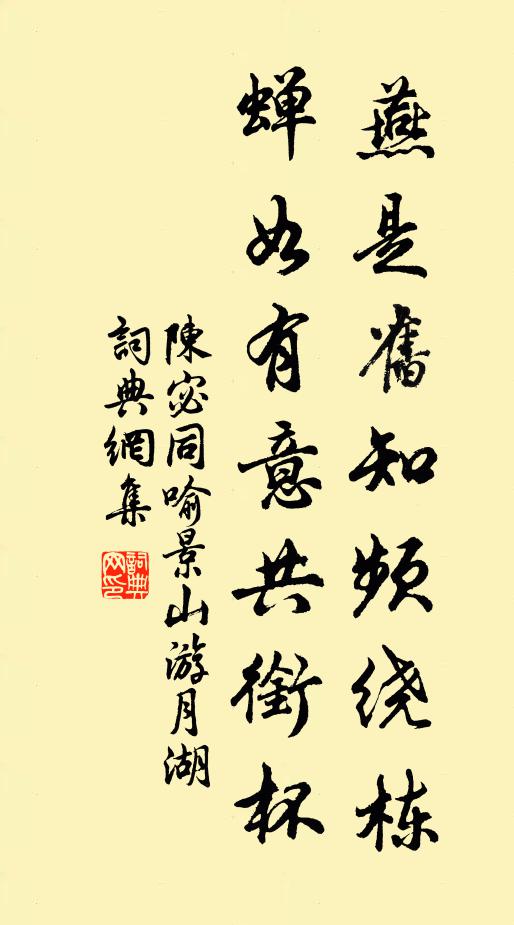 燕是舊知频绕栋
蝉如有意共銜杯
陳宓同喻景山游月湖
詞典網集
詞典网印